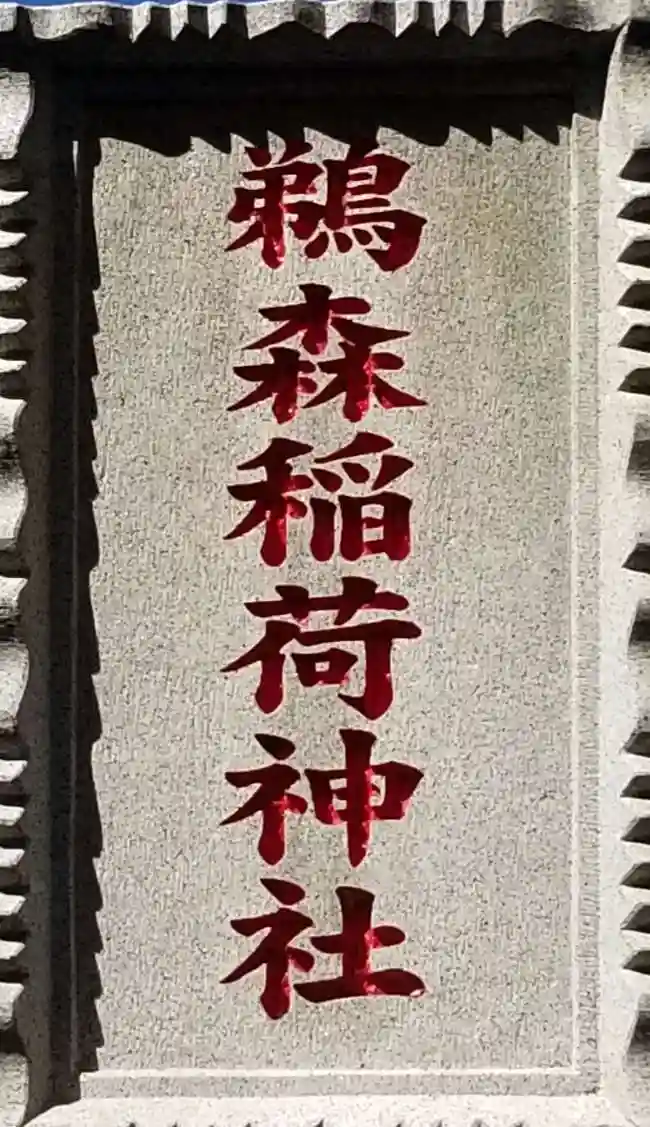 鵜森稲荷神社